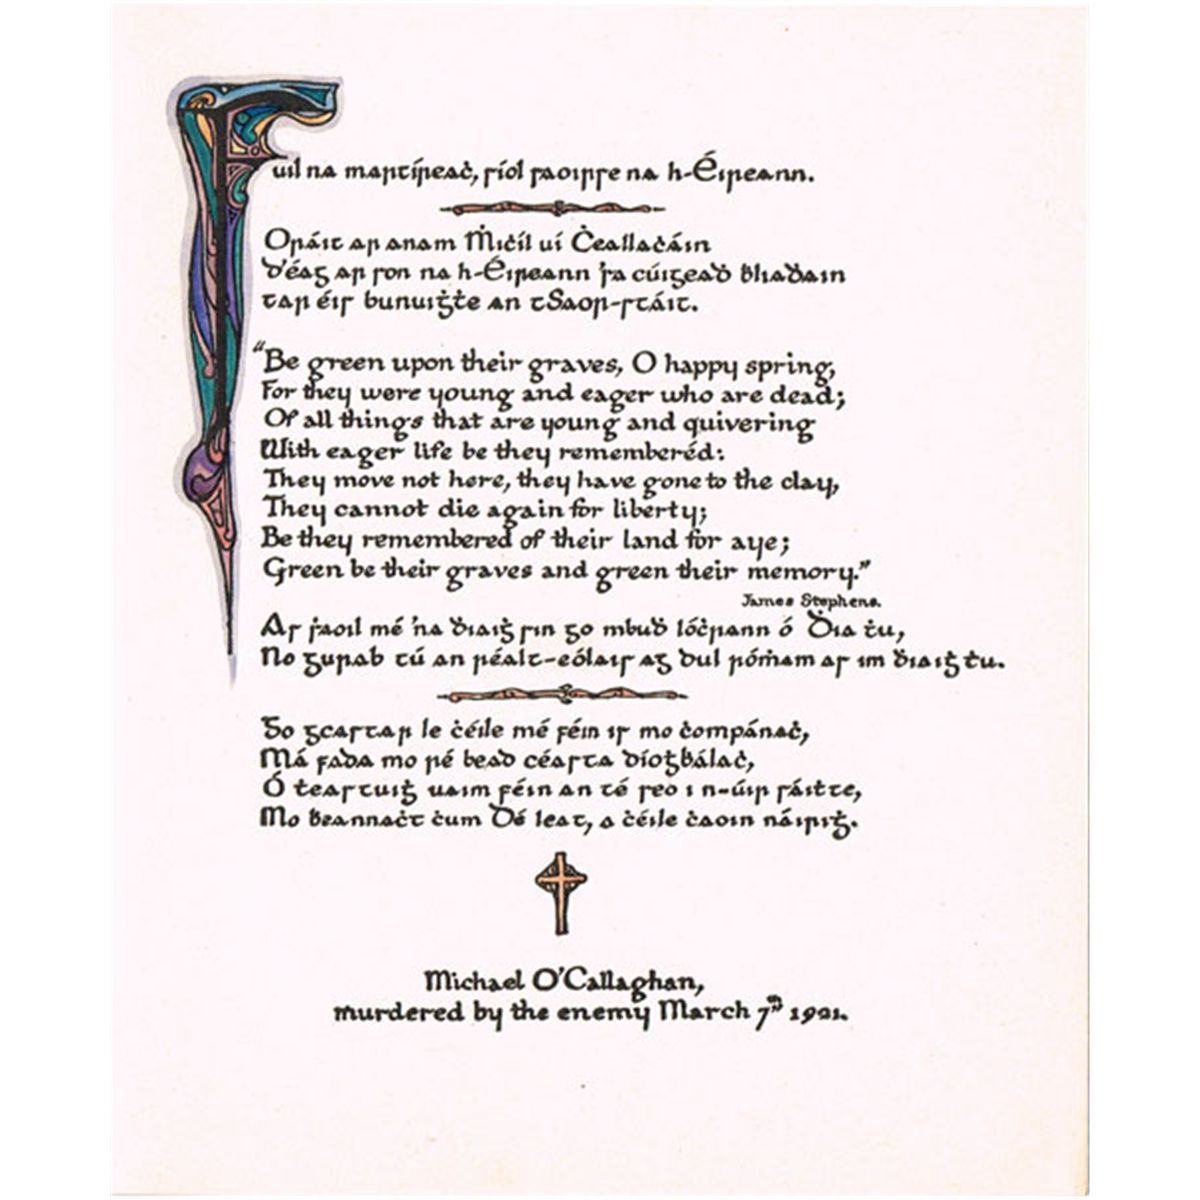 Fuil na mairtíreaċ, síol saoirse na h-Éireann.
Oráit ar anam Ṁiċíl uí Ċeallaċáin
d'éag ar son na h-Éireann ṡa cúigeaḋ ḃliaḋain
tar éis bunuiġṫe an tSaor-stáit.
"Be green upon their graves, O happy spring,
For they were young and eager who are dead;
Of all things that are young and quivering
With eager life be they rememberéd:
They move not here, they have gone to the clay,
They cannot die again for liberty;
Be they remembered of their land for aye;
Green be their graves and green their memory."
James Stephens.
As ṡaoil mé 'na ḋiaiġ sin go mbuḋ lóċrann ó Ḋia ṫu,
No gurab tú an réalt-eólais ag dul róṁam as im ḋiaiġ ṫu.
Go gcastar le ċéile mé féin is mo ċompánaċ,
Má fada mo ré bead céasta díoġḃálaċ,
Ó ṫeastuiġ uaim féin an té seo i n-úir sáiṫte,
Mo ḃeannaċt ċum Dé leat, a ċéile ċaoin náiriġ.
Michael O'Callaghan,
murdered by the enemy March 7th 1921.